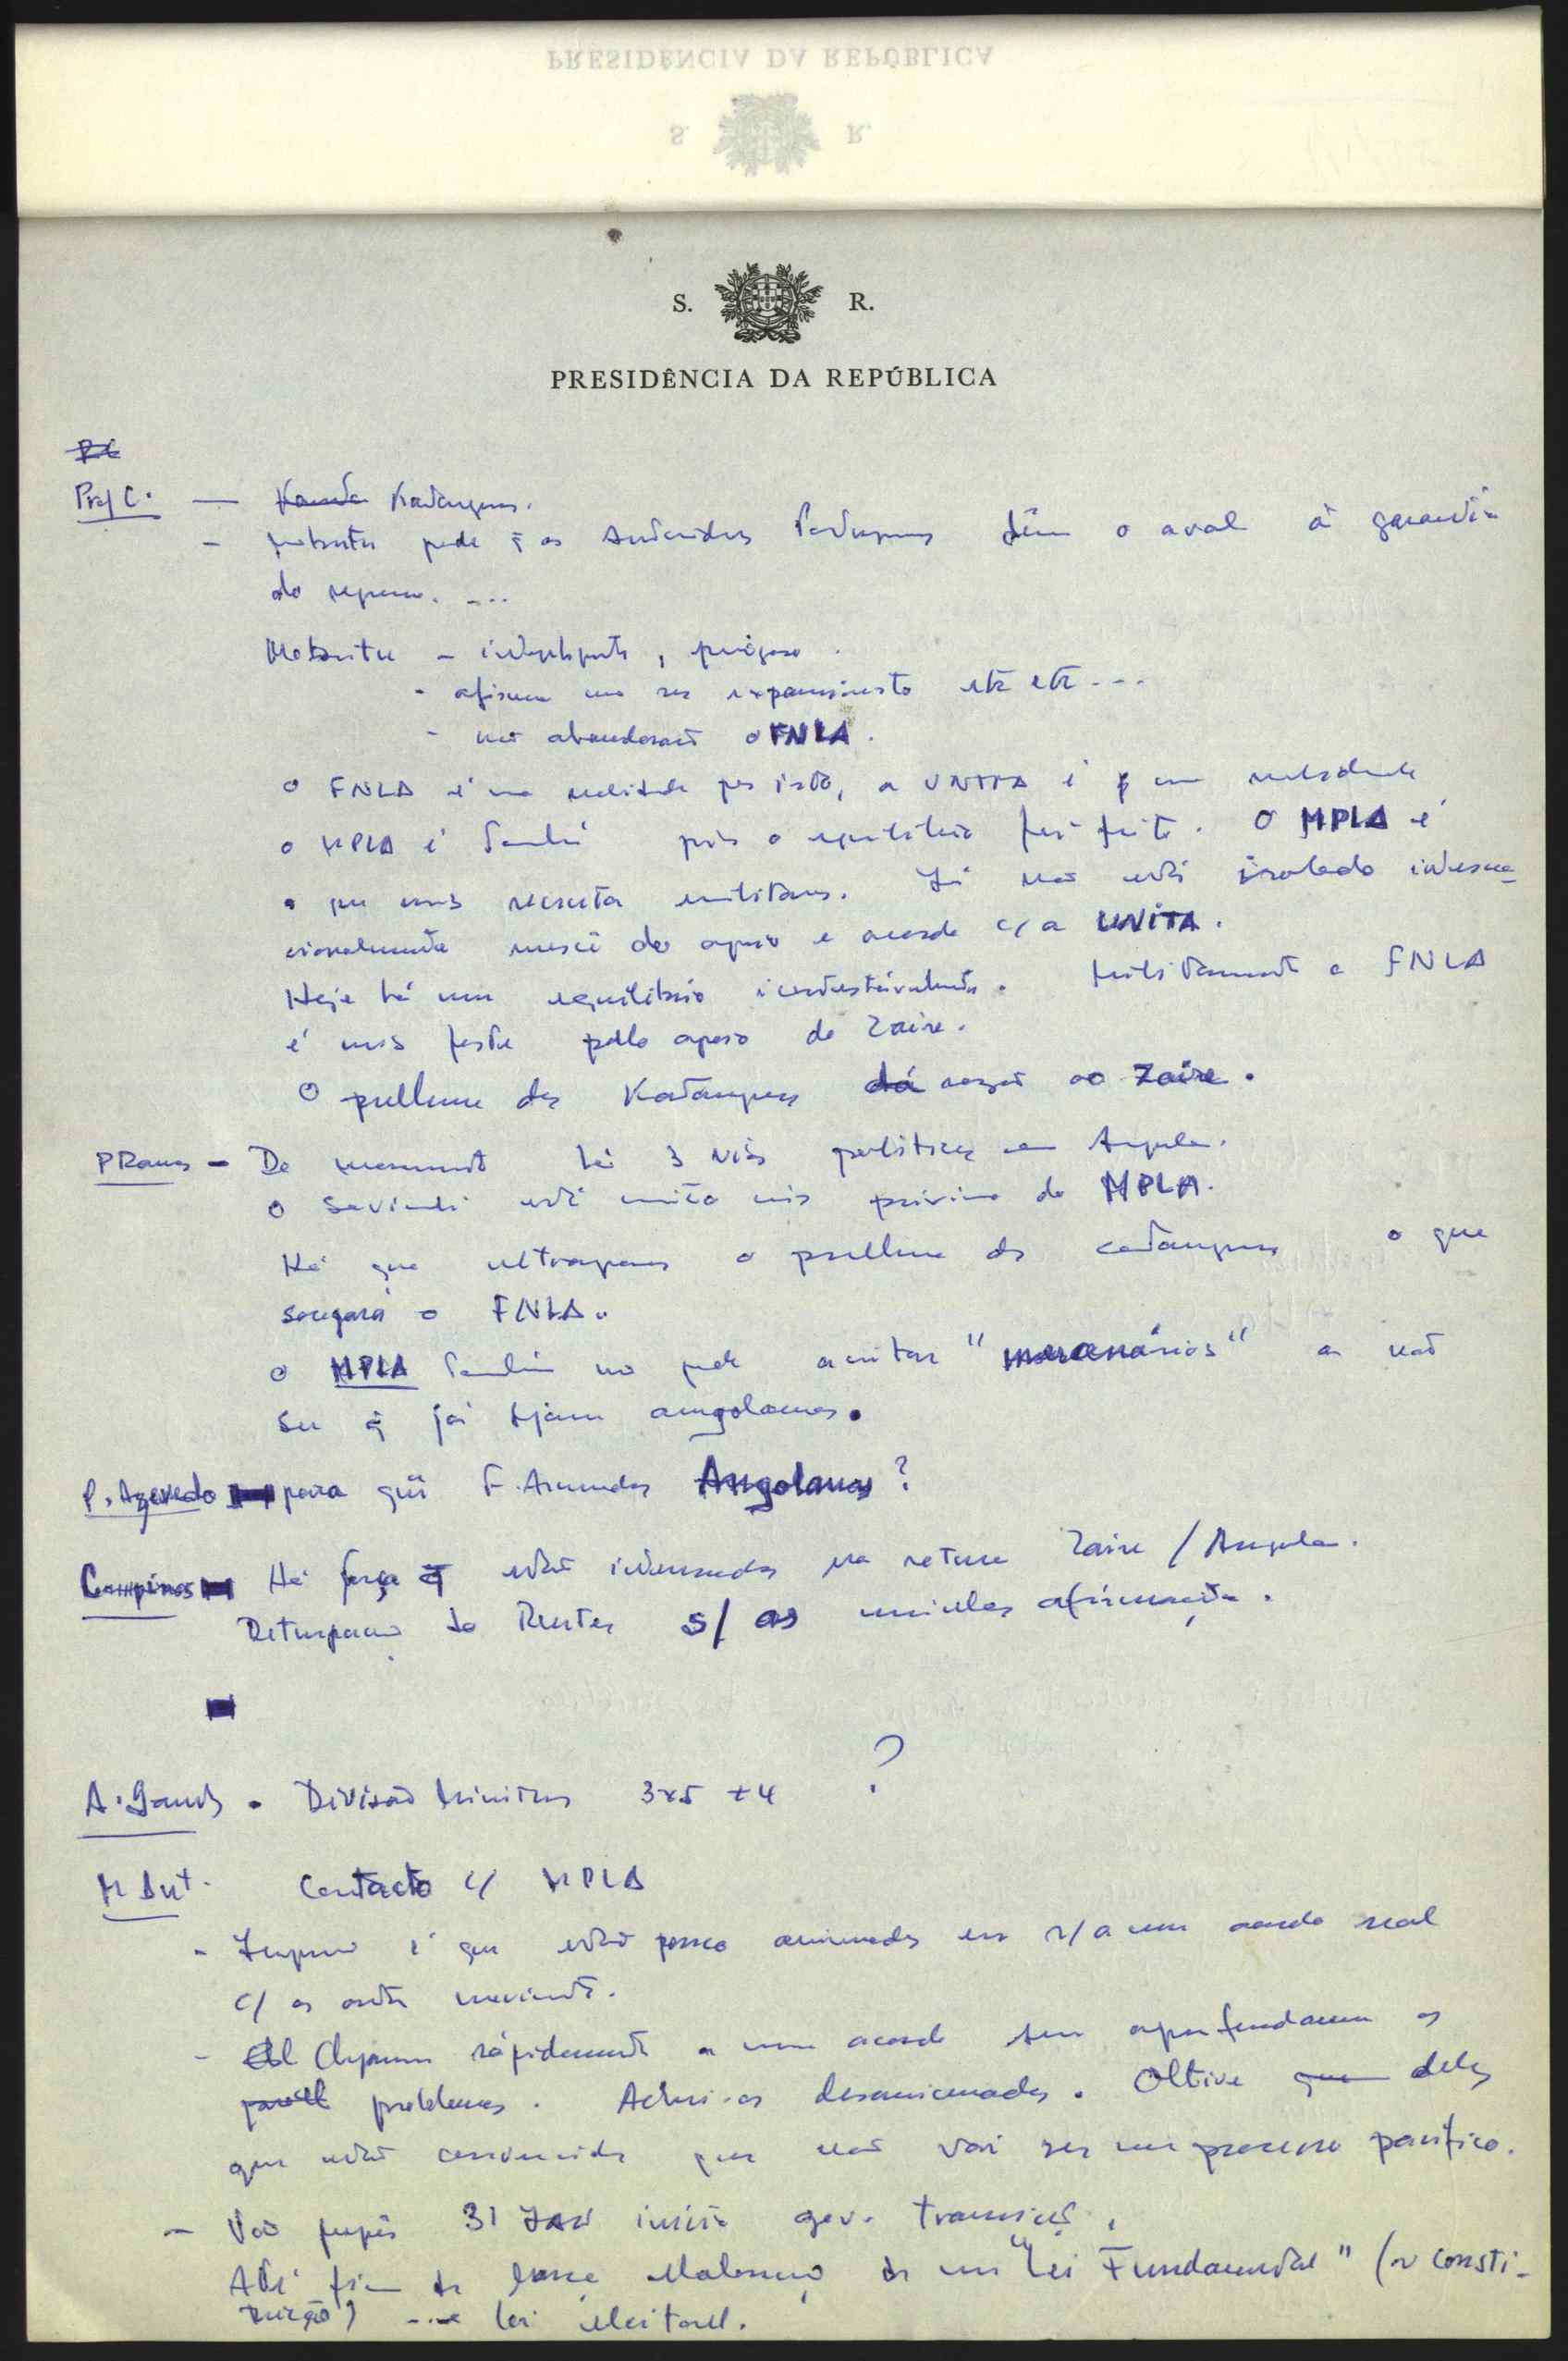 PRESIDÊNCIA DA REPÚBLICA
S. R.
S. R.
PRESIDÊNCIA DA REPÚBLICA
P.C
Prof C. — Kaunda Katangueses.
- pede q̃ as Autoridades Portuguesas dêm o aval à garantia
do regresso. ....
Mobutu - inteligente, perigoso.
- afirma não ser expansionista etc etc ...
- não abandonará o FNLA.
o FNLA é uma realidade por isto, a UNITA é uma realidade
o MPLA é também pois o equilíbrio foi feito. O MPLA é
o que mais necessita militares. Já não está isolado interna-
cionalmente mercê do apoio e acordo c/ a UNITA.
Hoje há um equilíbrio incontestàvelmente. Militarmente a FNLA
é mais forte pelo apoio do Zaire.
O problema dos Katangueses dá razão ao Zaire.
P Ramos - De momento há 3 vias políticas em Angola.
o Savimbi está muito mais próximo do MPLA.
Há que ultrapassar o problema dos catangueses o que
sossegará o FNLA.
o MPLA também não pode aceitar "mercenários" a não
ser q̃ já sejam angolanos.
P. Azevedo para quê F. Armadas Angolanas?
Campinos Há força q̃ estão interessadas na rotura Zaire / Angola.
Deturpação da Reuter s/ as minhas afirmações.
A. Santos - Divisão Ministros 3x5 + 4 ?
M Ant. Contacto c/ MPLA
- Impressão é que estão pouco animados em um acordo real
c/ os outros movimentos.
- Chegaram ràpidamente a um acordo sem aprofundarem os
problemas. Achei-os desanimados. Obtive deles
que estão convencidos que não vai ser um processo pacífico.
- Vão propôr 31 JAN início gov. transição,
Até fim de Março elaboração de um "Lei Fundamental" (ou consti-
tuição) ... e lei eleitoral.